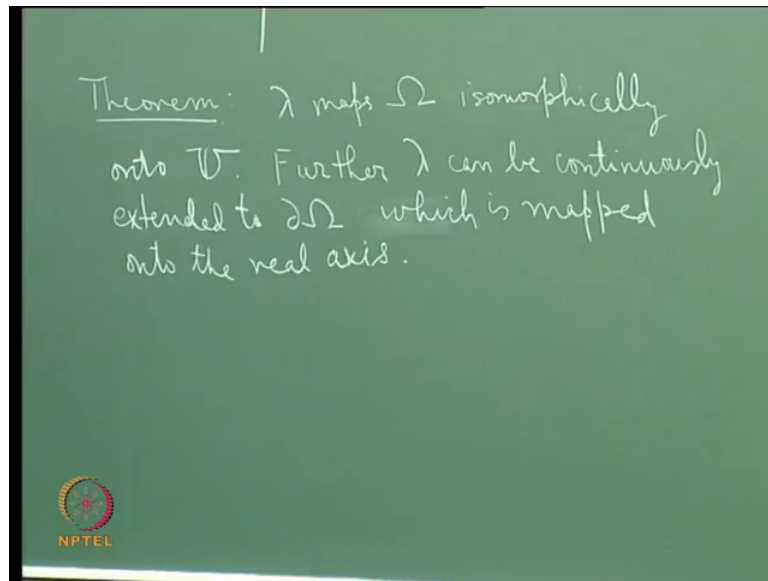 Theorem: λ maps Ω isomorphically
onto U. Further λ can be continuously
extended to ∂Ω which is mapped
onto the real axis.
NPTEL